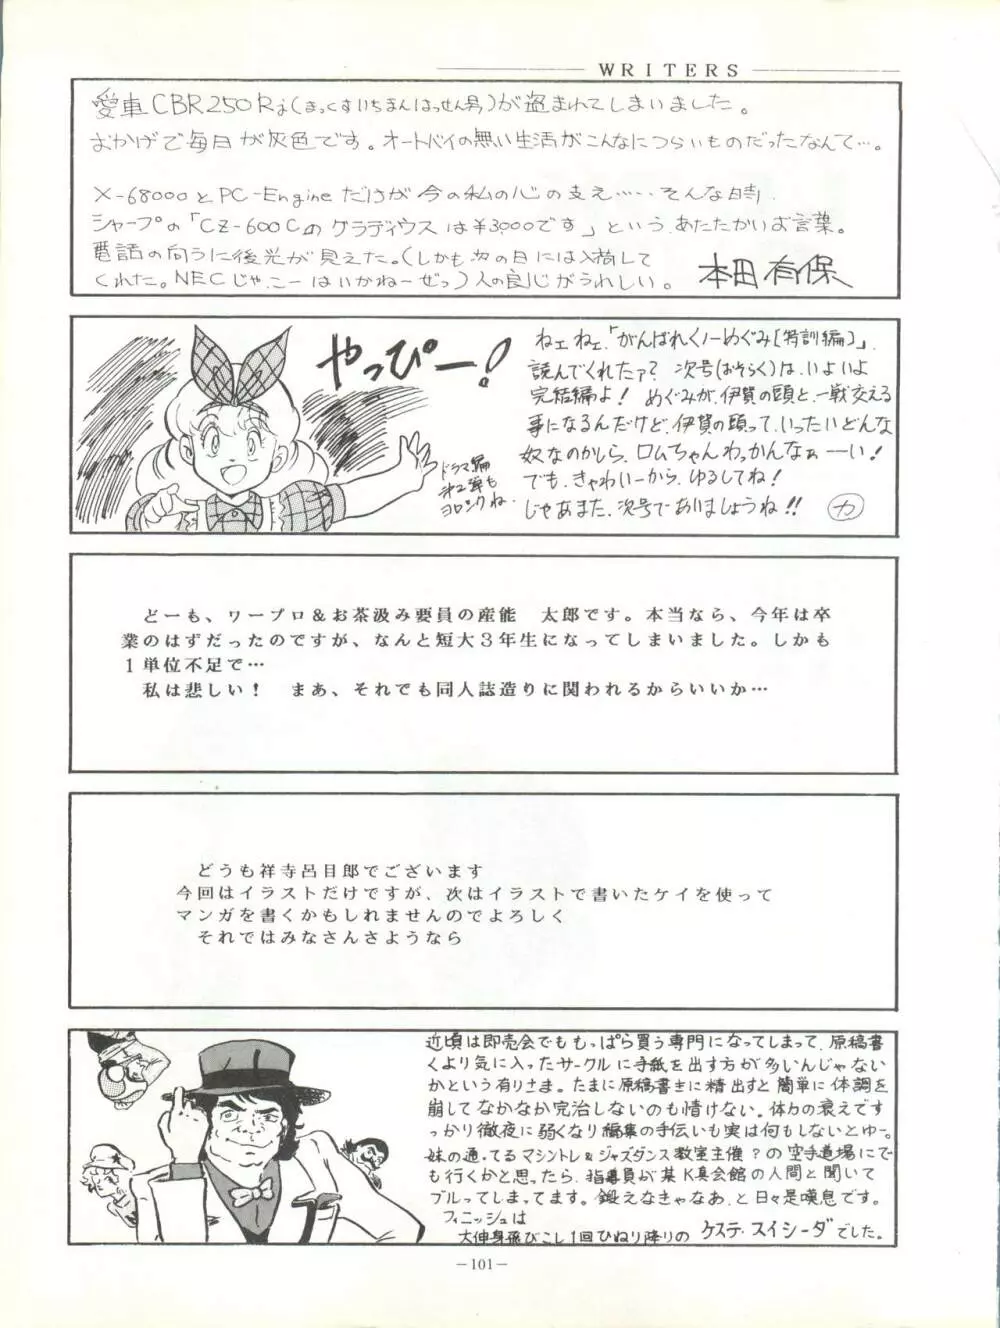 WRITERS
愛車CBR250Rj(まっくすいちまんはっせん号)が盗まれてしまいました。
おかげで毎日が灰色です。オートバイの無い生活がこんなにつらいものだったなんて…。
X-68000とPC-Engineだけが今の私の心の支え……そんな時、
シャープの「CZ-600Cのグラディウスは¥3,000です」という、あたたかいお言葉。
電話の向うに後光が見えた。(しかも次の日には入荷して
くれた。NECじゃこーはいかねーぜっ)人の良心がうれしい。
本田有保
やっぴー!
ドラマ編
第2弾も
ヨロシクね
ねェねェ、「がんばれくノ一めぐみ[特訓編]」、
読んでくれたァ?次号(おそらく)は、いよいよ
完結編よ! めぐみが、伊賀の頭と、一戦交える
事になるんだけど、伊賀の頭って、いったいどんな
奴なのかしら、ロムちゃんわっかんなぁーい!
でも、きゃわいーから、ゆるしてね!
じゃあまた、次号でありましょうね!!
カ
どーも、ワープロ&お茶汲み要員の産能 太郎です。本当なら、今年は卒
業のはずだったのですが、なんと短大3年生になってしまいました。しかも
1単位不足で…
私は悲しい! まあ、それでも同人誌造りに関われるからいいか…
どうも祥寺呂目郎でございます
今回はイラストだけですが、次はイラストで書いたケイを使って
マンガを書くかもしれませんのでよろしく
それではみなさんさようなら
近頃は即売会でももっぱら買う専門になってしまって、原稿書
くより気に入ったサークルに手紙を出す方が多いんじゃない
かという有りさま。たまに原稿書きに精出すと簡単に体調を
崩してなかなか完治しないのも情けない。体力の衰えですっ
かり徹夜に弱くなり編集の手伝いも実は何もしないとゆー。
妹の通ってるマシントレ&ジャズダンス教室主催?の空手道場にで
も行くかと思ったら、指導員が某K真会館の人間と聞いて
ブルってしまってます。鍛えなきゃなあ、と日々是嘆息です。
フィニッシュは
大伸身飛びこし1回ひねり降りの ケステ・スイシーダでした。
-101-